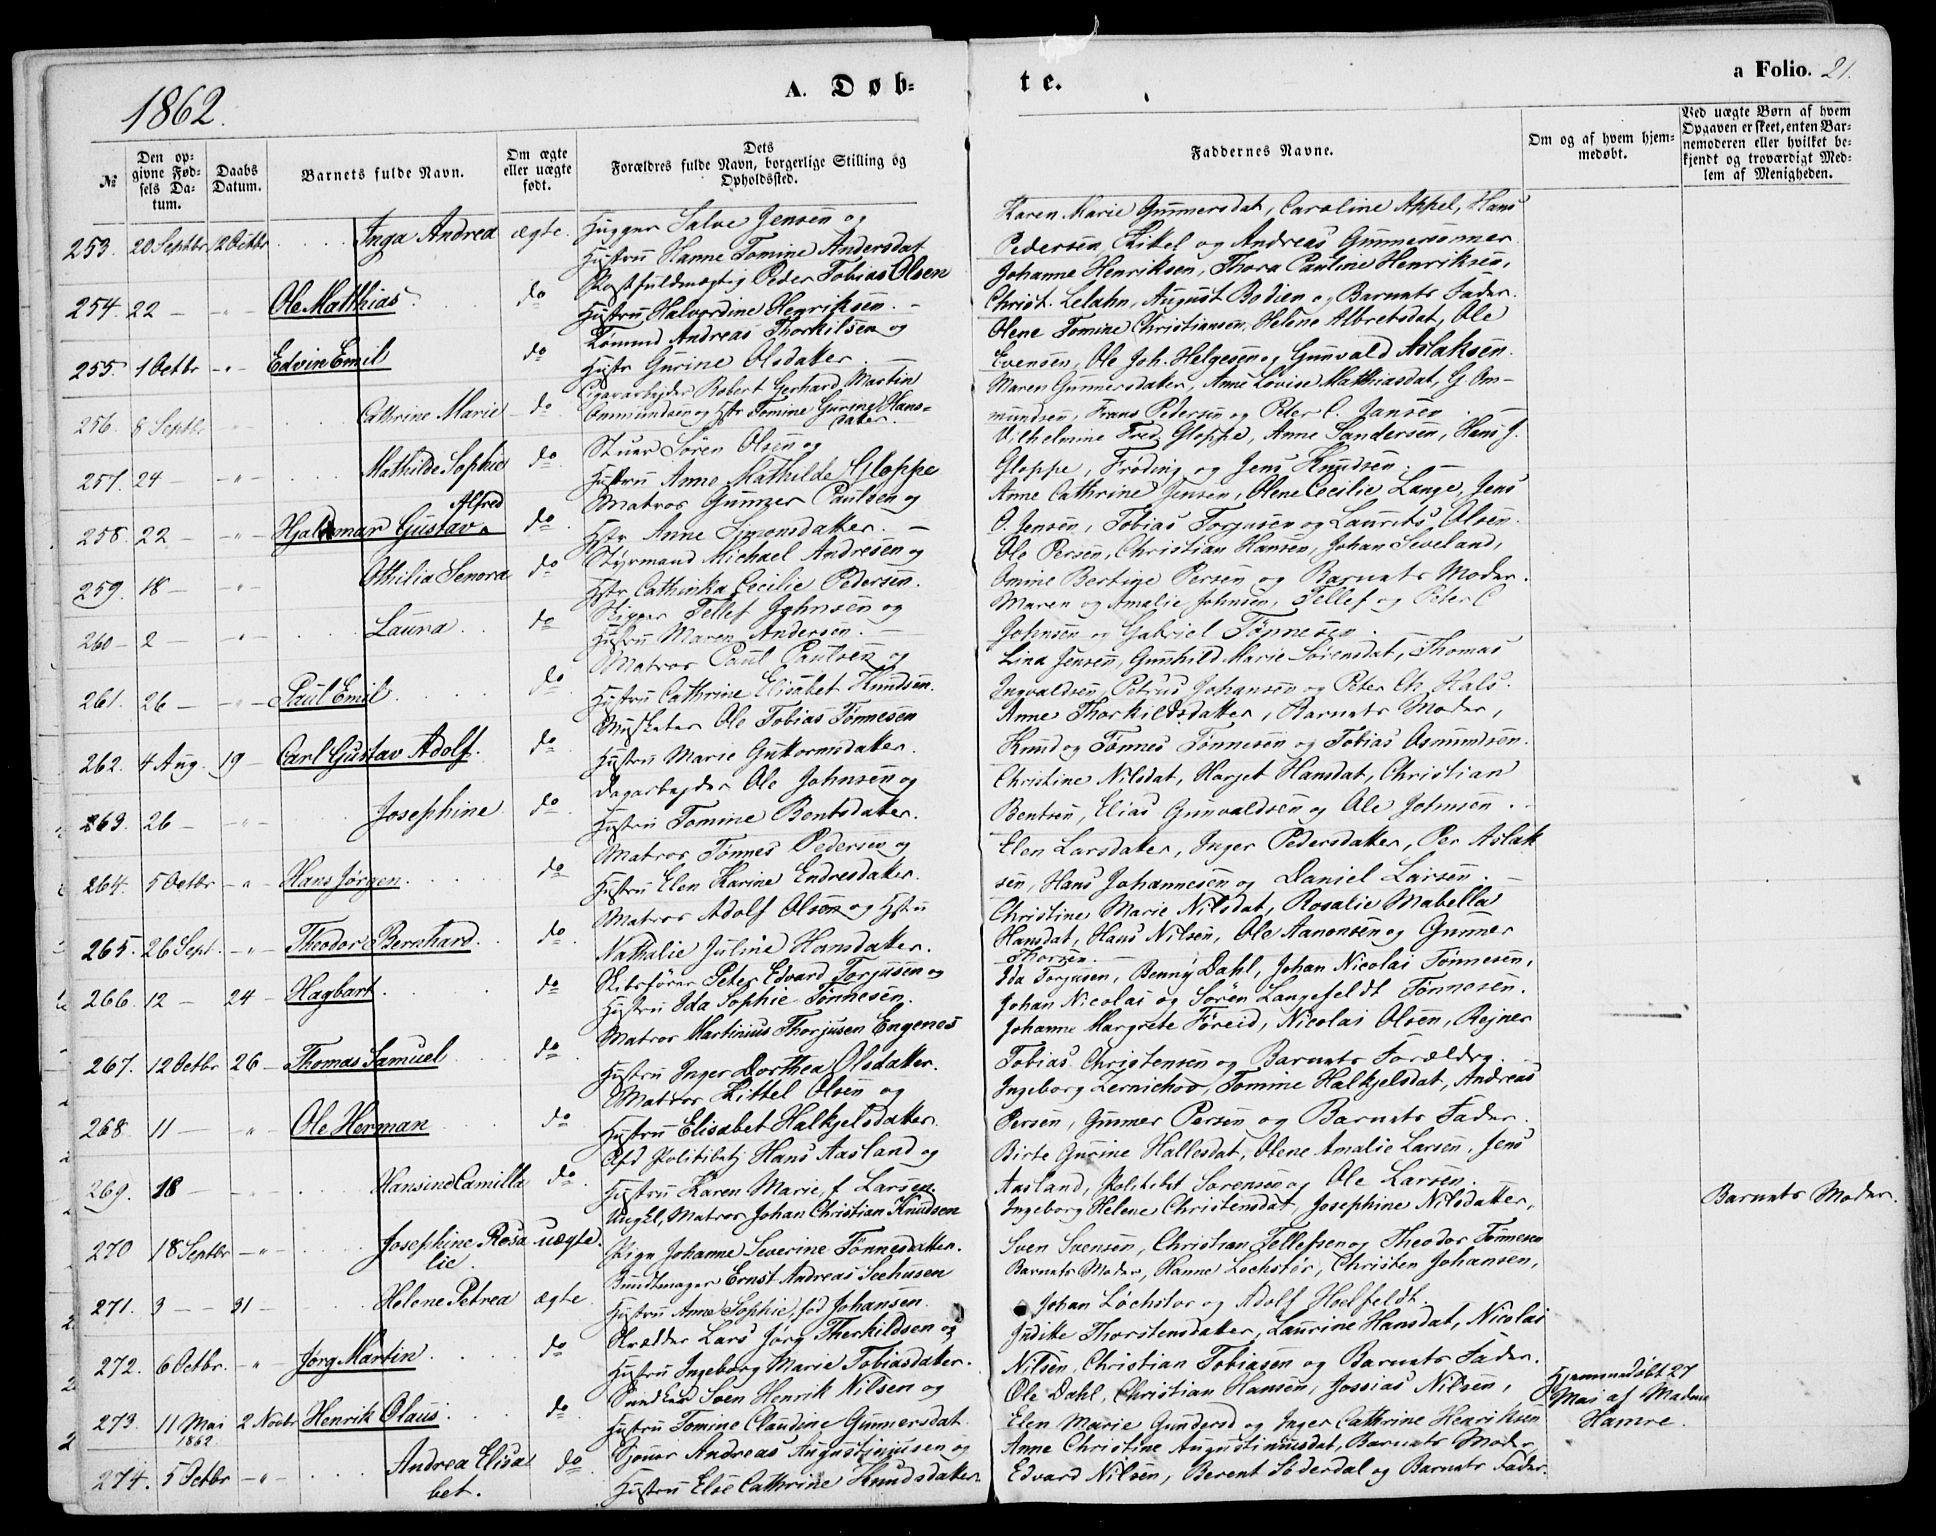 1862.
A. Døb-
te.
a Folio. 21.
№
Den op-
givne Fød-
sels Da-
tum.
Daabs
Datum.
Barnets fulde Navn.
Om ægte
eller uægte
født.
Dets
Forældres fulde Navn, borgerlige Stilling og
Opholdssted.
Faddernes Navne.
Om og af hvem hjem-
medøbt.
Ved uægte Børn af hvem
Opgaven er skeet, enten Bar-
nemoderen eller hvilket be-
kjendt og troværdigt Med-
lem af Menigheden.
253. 20 Septbr 12 Octbr Inga Andrea ægte. Hugger Salve Jensen og
Hustru Hanne Tomine Andersdat
Karen Marie Gunnersdat, Caroline Appel, Hans
Pedersen, Kikel og Andreas Gunnersønner.
254. 22 — -"- Ole Matthias. do Postfuldmægtig Peder Tobias Olsen
Hustru Halvordine Henriksen. -
Johanne Henriksen, Thora Pauline Henriksen,
Christ. Lelahn, August Bodien og Barnets Fader.
255. 1 Octbr -"- Edvin Emil do Tømmd Andreas Thorkilsen og
Hustr Gurine Olsdatter. —
Olene Tomine Christiansen, Helene Albretsdat, Ole
Evensen, Ole Joh. Helgesen og Gunvald Aslaksen.
256. 8 Septbr -"- Cathrine Marie - do Cigararbejder Robert Gerhard Martin
Ommundsen og Hstr Tomine Gurine Hans-
datter.
Maren Gunnersdatter, Anne Lovise Matthiasdat, G. Om-
mundsen, Frans Pedersen og Peter C. Jansen. —
257. 24 -"- Mathilde Sophie do Stuer Søren Olsen og
Hustru Anne Mathilde Gloppe
Vilhelmine Fred. Gloppe, Anne Sandersen, Hans J.
Gloppe, Frøding og Jens Knudsen. —
258. 22 — -"- Hjalmar Gustav Alfred do Matros Gunner Paulsen og
Hstr Anne Simonsdatter. —
Anne Cathrine Jensen, Olene Cecilie Lange, Jens
O. Jensen, Tobias Torjusen og Laurits Olsen.
259. 18 — -"- Othilia Senora do Styrmand Michael Andresen og
Hstr Cathinka Cecilie Pedersen.
Ole Persen, Christian Hansen, Johan Seveland,
Omine Bertine Persen og Barnets Moder.
260 — 2 — -"- Laura. do Skipper Tellef Johnsen og
Hustru Maren Andersen. —
Maren og Amalie Johnsen, Tellef og Peter C
Johnsen og Gabriel Tønnesen.
261. 26 — -"- Paul Emil do Matros Paul Paulsen og
Hustru Cathrine Elisabet Knudsen.
Lina Jensen, Gunhild Marie Soiensdat, Thomas
Ingvaldsen, Petrus Johansen og Peter Chr Hals.
262. 4 Aug. 19 — Carl Gustav Adolf. do Musketer Ole Tobias Tønnesen
Hustru Marie Gutormsdatter.
Anne Thorkildsdatter, Barnets Moder,
Knud og Tønnes Tønnesen og Tobias Osmundsen.
263. 26 — -"- Josephine do Dagarbejder Ole Johnsen og
Hustru Tomine Bentsdatter.
Christine Nilsdat, Harjet Hansdat, Christian
Bentsen, Elias Gunvaldsen og Ole Johnsen.
264. 5 Octbr -"- Hans Jørgen. do Matros Tønnes Pedersen og
Hustru Elen Karine Endresdatter.
Elen Larsdatter, Inger Pedersdatter, Per Aslak
sen, Hans Johannesen og Daniel Larsen. —
265. 26 Sept. -"- Theodor Bernhard. do Matros Adolf Olsen og Hstru
Nathalie Juline Hansdatter.
Christine Marie Nilsdat, Rosalie Mabella
Hansdat, Hans Nilsen, Ole Aanonsen og Gunner
Thorsen. —
266. 12 — 24 — Hagbart do Skibsfører Peter Edvard Torjusen og
Hustru Ida Sophie Tønnesen.
Ida Torjusen, Benny Dahl, Johan Nicolai Tønnesen,
Johan Nicolai og Søren Langefeldt Tønnesen.
267. 12 Octbr 26 — Thomas Samuel do Matros Martinius Thorjusen Engenes
Hustru Inger Dorthea Olsdatter.
Johanne Margrete Føreid, Nicolai Olsen, Rejner
Tobias Christensen og Barnets Forældre. —
268. 11 — " — Ole Herman do Matros Kittel Olsen og
Hustru Elisabet Halkjelsdatter.
Ingeborg Zernichow, Tomine Halkjelsdat, Andreas
Persen, Gunner Persen og Barnets Fader.
269. 18 — -"- Hansine Camilla do. Afd Politibetj Hans Aasland og
Hustru Karen Marie f. Larsen
Birte Gurine Hallesdat, Olene Amalie Larsen, Jens
Aasland, Politibet Sørensen og Ole Larsen.
270 18 Septbr -"- Josephine Rosa
lie. uægte. Ungkl, Matros Johan Christian Knudsen
Pige Johanne Severine Tønnesdatter.
Ingeborg Helene Christensdat, Josephine Nilsdatter,
Sven Svensen, Christian Tellefsen og Theodor Tønnesen
Barnets Moder.
271. 3 — 31 — Helene Petrea ægte Bundtmager Ernst Andreas Seehusen
Hustru Anne Sophie, fød Johansen.
Barnets Moder, Hanne Lochstør, Christen Johansen,
Johan Lochstor og Adolf Hoelfeldt.
272. 6 Octbr. -"- Jørg Martin do Skrædder Lars Jørg Therkildsen og
Hustru Ingeborg Marie Tobiasdatter.
Judithe Thorstensdatter, Laurine Hansdat, Nicolai
Nilsen, Christian Tobiasen og Barnets Fader.
273. 11 Mai
1862 2 Novbr Henrik Olaus. do Sven Henrik Nilsen og
Hustru Tomine Claudine Gunnersdat.
Ole Dahl, Christian Hansen, Jossias Nilsen,
Elen Marie Gundersd og Inger Cathrine Henriksen
Hjemmedøbt 27
Mai af Madme
Hamre.
274. 5 Octbr -"- Andrea Elisa
bet. do Gjouer Andreas Augustiniusen og
Hustru Else Cathrine Knudsdatter.
Anne Christine Augustiniusdat, Barnets Moder,
Edvard Nilsen, Berent Söderdal og Barnets Fader.